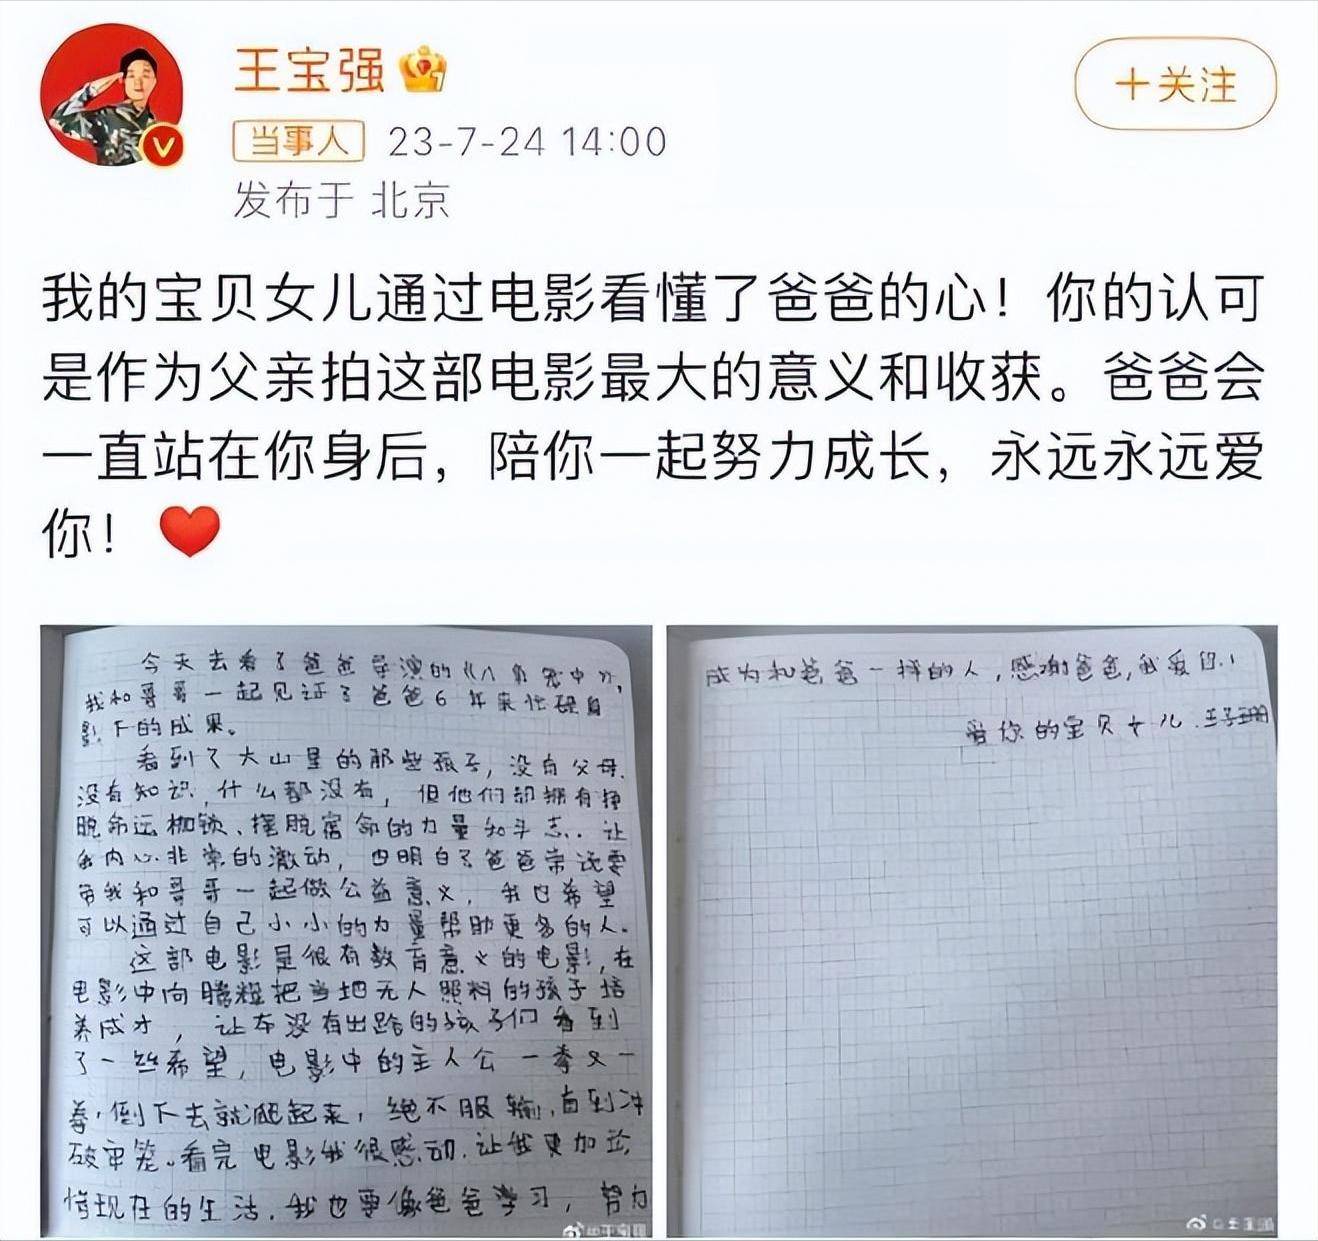 王宝强
+关注
当事人 23-7-24 14:00
发布于 北京
我的宝贝女儿通过电影看懂了爸爸的心！你的认可
是作为父亲拍这部电影最大的意义和收获。爸爸会
一直站在你身后，陪你一起努力成长，永远永远爱
你！
今天去看了爸爸导演的《八角笼中》，
我和哥哥一起见证了爸爸6年来忙碌身
影下的成果。
看到了大山里的那些孩子，没有父母，
没有知识，什么都没有，但他们却拥有挣
脱命运枷锁、摆脱宿命的力量和斗志。让
我内心非常的激动，也明白了爸爸常说要
带我和哥哥一起做公益意义，我也希望
可以通过自己小小的力量帮助更多的人。
这部电影是很有教育意义的电影，在
电影中向腾辉把当地无人照料的孩子培
养成才，让本没有出路的孩子们看到
了一丝希望，电影中的主人公一拳又一
拳，倒下去就爬起来，绝不服输，直到冲
破牢笼。看完电影我很感动，让我更加珍
惜现在的生活，我也要像爸爸学习，努力
成为和爸爸一样的人，感谢爸爸，我爱你！
爱你的宝贝女儿：王子珊